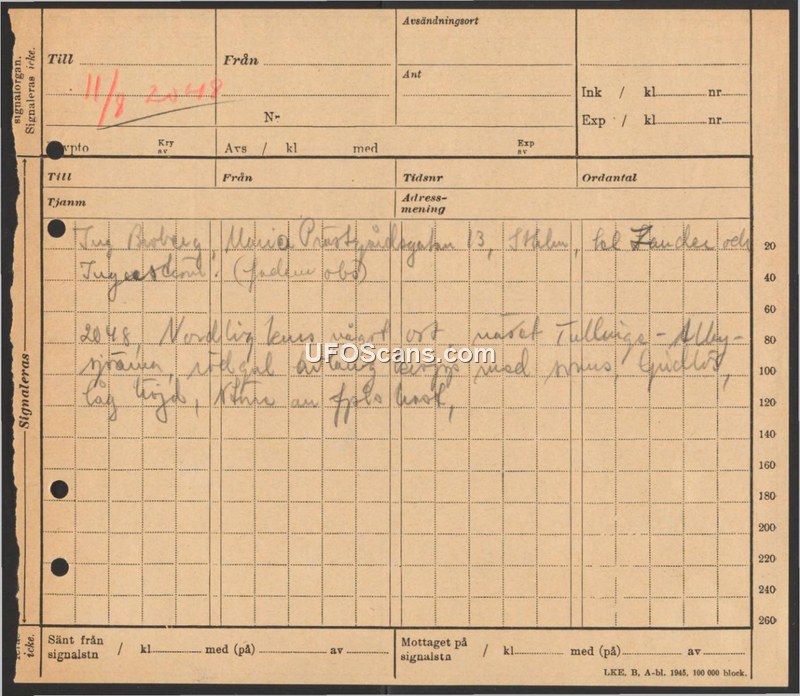 Avsändningsort
signalorgan.
Signaleras icke.
Till
Från
Ant
11/8 2048
Ink / kl nr
Nr
Exp / kl nr
ypto
Kry av
Avs / kl med
Exp av
Till Från Tidsnr Ordantal
Tjänm Adress-
mening
Ing Broberg, Maria Prästgårdsgatan 13, Sthlm, Zander och
20
40
60
2048, Nordlig kurs något ost, näset Tullinge - Alby-
80
UFOScans.com
sjöarna, rödgul avlång kropp med svans, ljudlös,
100
låg höjd, större än fpls hast,
120
Signaleras
140
160
180
200
220
240
260
icke.
Sänt från
signalstn / kl med (på) av
Mottaget på
signalsta / kl med (på) av
LKE, B, A-bl. 1945, 100 000 block.